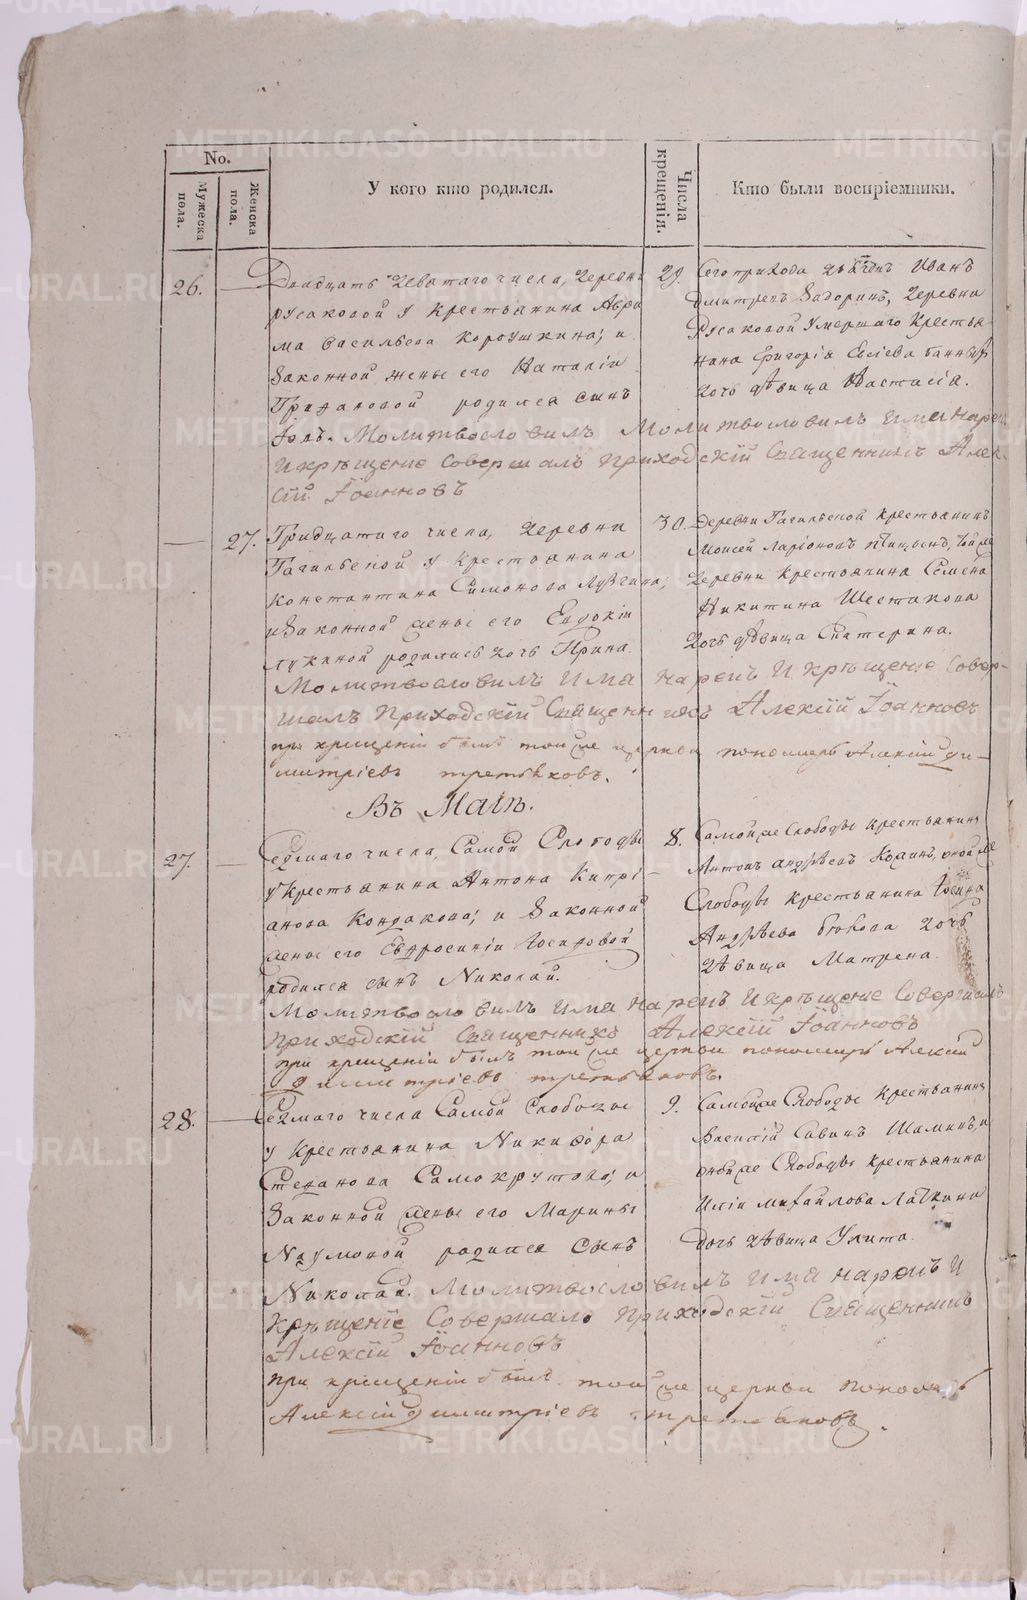 No.
Мужеска пола.
Женска пола.
У кого кто родился.
Числа крещенія.
Кто были воспріемники.
26.
Двадцать деватого числа, деревни
русаковой у крестьянина Авра
ма Васильева Коровушкина; и
законной жены его Наталіи
родился сынъ
Молитвословилъ Молитвословилъ имя нарекъ
и крѣщение совершалъ приходскій Священникъ Алек-
сій Іоанновъ
29.
Сего прихода Иванъ
Дмитревъ Задоринъ, деревни
Русаковой умершаго крестья-
нина Григорія
дочь дѣвица Настасія.
27.
Тридцатаго числа, деревни
Тагильской у крестьянина
Константина Симонова Лузгина;
и законной жены его Евдокіи
Лукиной родилась дочь Ирина.
Молитвословилъ имя нарекъ и крѣщение совер-
шалъ приходскій Священникъ Алексій Іоанновъ
при крещеніи былъ той же церкви пономарь Алексій Ди-
митріевъ третьяковъ.
30.
Деревни Тагильской крестьянинъ
Моисей Ларіоновъ птицынъ, той же
деревни крестьянина Семена
Никитина Шестакова
дочь дѣвица Екатерина.
Въ Маіѣ.
27.
Седмаго числа, Самой Слободы
у крестьянина Антона Кипрі-
анова Кондакова; и законной
жены его Евфросиніи Іосифовой
родился сынъ Николай.
Молитвословилъ имя нарекъ и крѣщение совершалъ
приходскій Священникъ Алексій Іоанновъ
при крещеніи былъ той же церкви пономарь Алексій
Димитріевъ третьяковъ.
8.
Самой же Слободы крестьянинъ
Антонъ Андрѣевъ оной же
Слободы крестьянина
Андрѣева дочь
дѣвица Матрена.
28.
Седмаго числа Самой Слободы
у крестьянина Никифора
Стефанова Самокрутова; и
законной жены его Марины
Наумовой родился сынъ
Николай. Молитвословилъ имя нарекъ и
крѣщеніе совершалъ приходскій Священникъ
Алексій Іоанновъ
при крещеніи былъ той же церкви пономарь
Алексій Димитріевъ третьяковъ.
9.
Самой же Слободы крестьянинъ
Василій Савинъ Шаминъ, и
оной же Слободы крестьянина
Иліи Михайлова
дочь дѣвица Улита.
METRIKI.GASO-URAL.RU